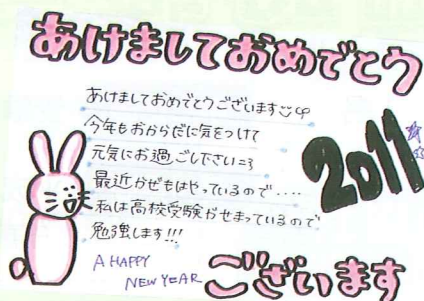 あけましておめでとう
あけましておめでとうございます
今年もおからだに気をつけて
元気にお過ごし下さい=3
最近かぜもはやっているので....
私は高校受験がせまっているので
勉強します!!!
2011
A HAPPY
NEW YEAR
ございます